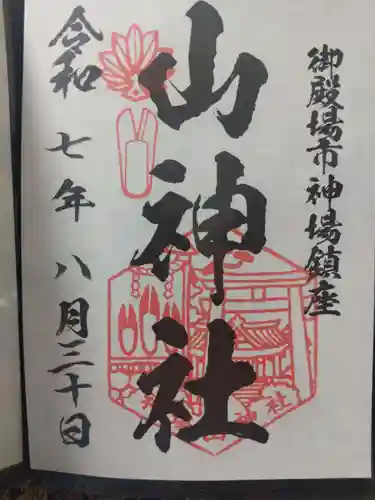 御殿場市神場鎮座
山神社
令和七年八月三十日